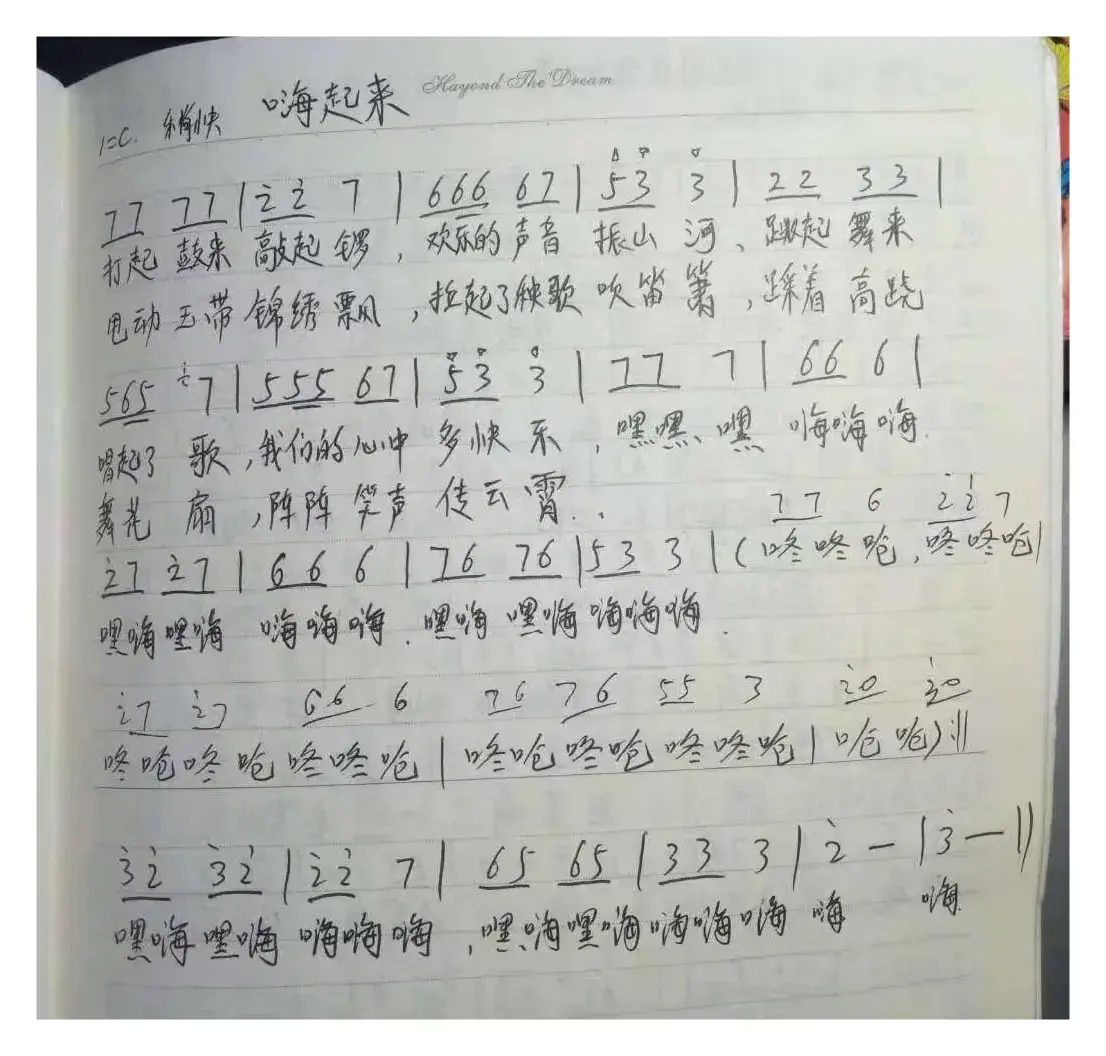 Hayond The Dream
1=C. 稍快 嗨起来
77 77 | i̇ i̇ 7 | 666 67 | 53 3 | 22 33 |
打起 鼓来 敲起 锣 , 欢乐的 声音 振山 河 、 跳起 舞来
甩动 玉带 锦绣 飘 , 拉起了秧歌 吹笛 箫 , 踩着 高跷
565 7 | 555 67 | 53 3 | 77 7 | 66 6 |
唱起了 歌 , 我们的 心中 多快 乐 , 嘿嘿、嘿 嗨嗨嗨.
舞花 扇 , 阵阵 笑声 传云 霄 .
77 6 2̇2̇ 7
2̇7 2̇7 | 66 6 | 76 76 | 53 3 | ( 咚咚呛 , 咚咚呛 |
嘿嗨嘿嗨 嗨嗨嗨 . 嘿嗨 嘿嗨 嗨嗨嗨 .
2̇7 2̇7 66 6 76 76 55 3 2̇0 3̇0
咚呛咚呛 咚咚呛 | 咚呛咚呛 咚咚呛 | 呛 呛 ) :||
3̇2̇ 3̇2̇ | 2̇2̇ 7 | 65 65 | 33 3 | 2̇ — | 3̇ — ||
嘿嗨嘿嗨 嗨嗨嗨 , 嘿嗨嘿嗨 嗨嗨嗨 嗨 嗨.